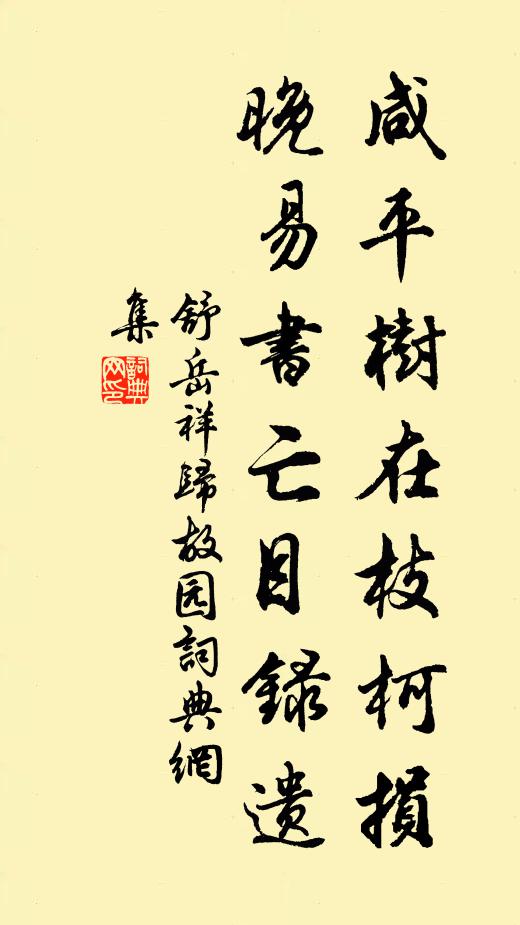 咸平樹在枝柯損
晚易書亡目録遗
舒岳祥歸故园詞典網
集
詞典网印